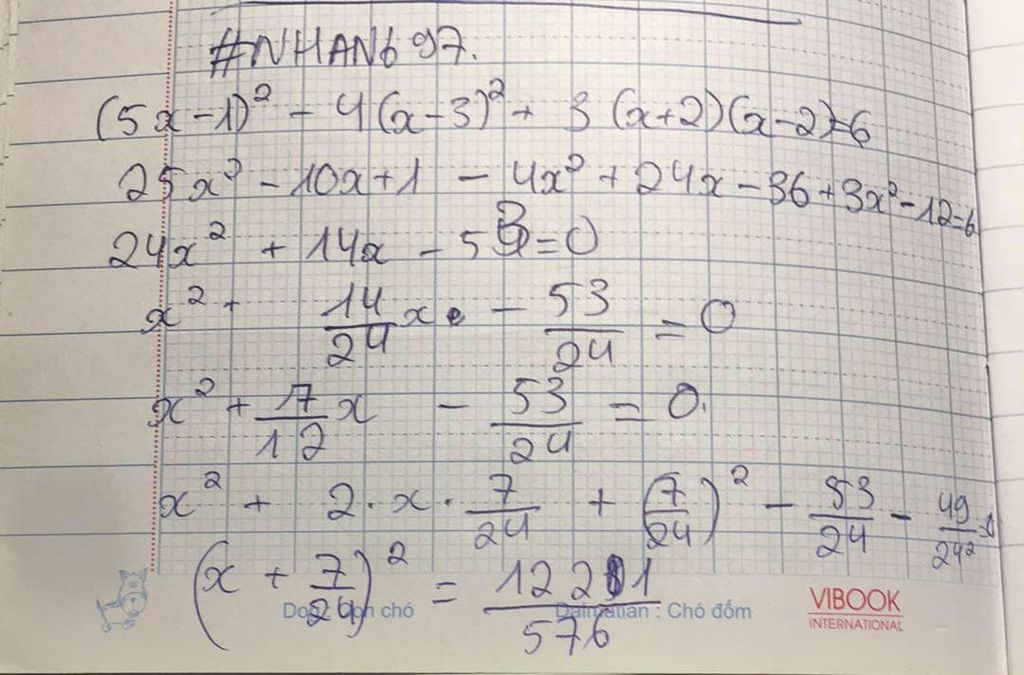 #NHAN697.
(5x-1)² - 4(x-3)² + 3(x+2)(x-2)=6
25x² - 10x+1 - 4x² + 24x - 36 + 3x² - 12=6
24x² + 14x - 53=0
x² + 14/24 x - 53/24 = 0
x² + 7/12 x - 53/24 = 0.
x² + 2·x·7/24 + (7/24)² - 53/24 - 49/24²
(x + 7/24)² = 1221/576
Dalmatian : Chó đốm
VIBOOK
INTERNATIONAL